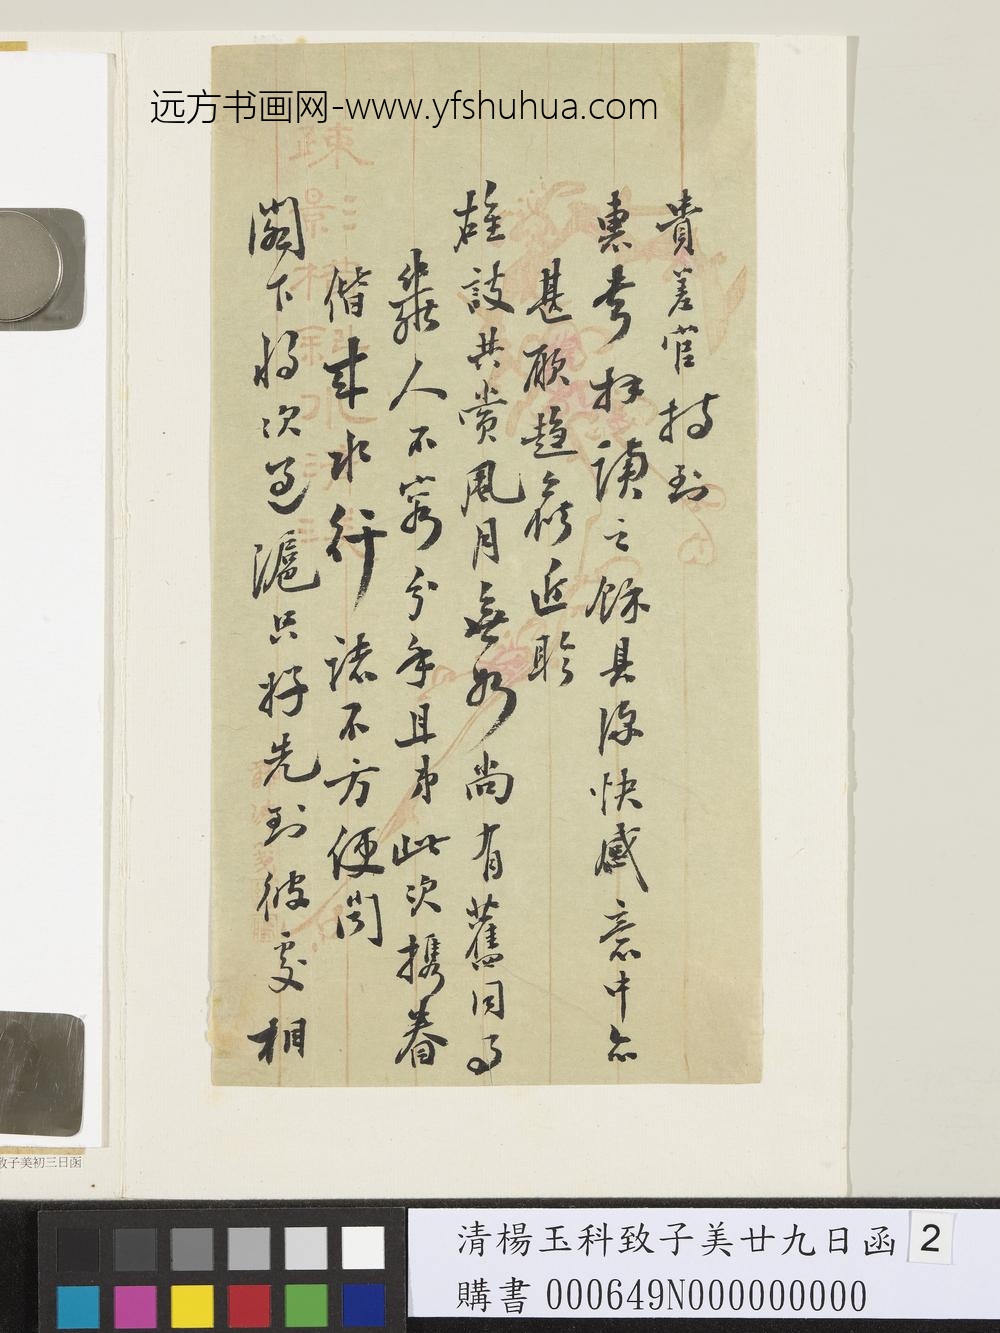 远方书画网-www.yfshuhua.com
貴差官持到
惠書拜讀之餘具深快感意中亦
甚願趨 近聆
雄談共賞風月無如尚有舊同事
數人不容分手且弟此次攜眷
偕來水行諸不方便閣
閣下將次過滬只好先到彼處相
疎景 水
致子美初三日函
清楊玉科致子美廿九日函 2
購書 000649N000000000